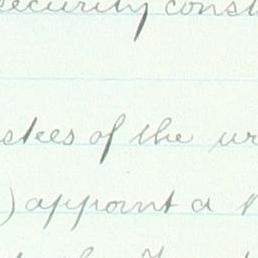 security const
stees of the
) appoint a